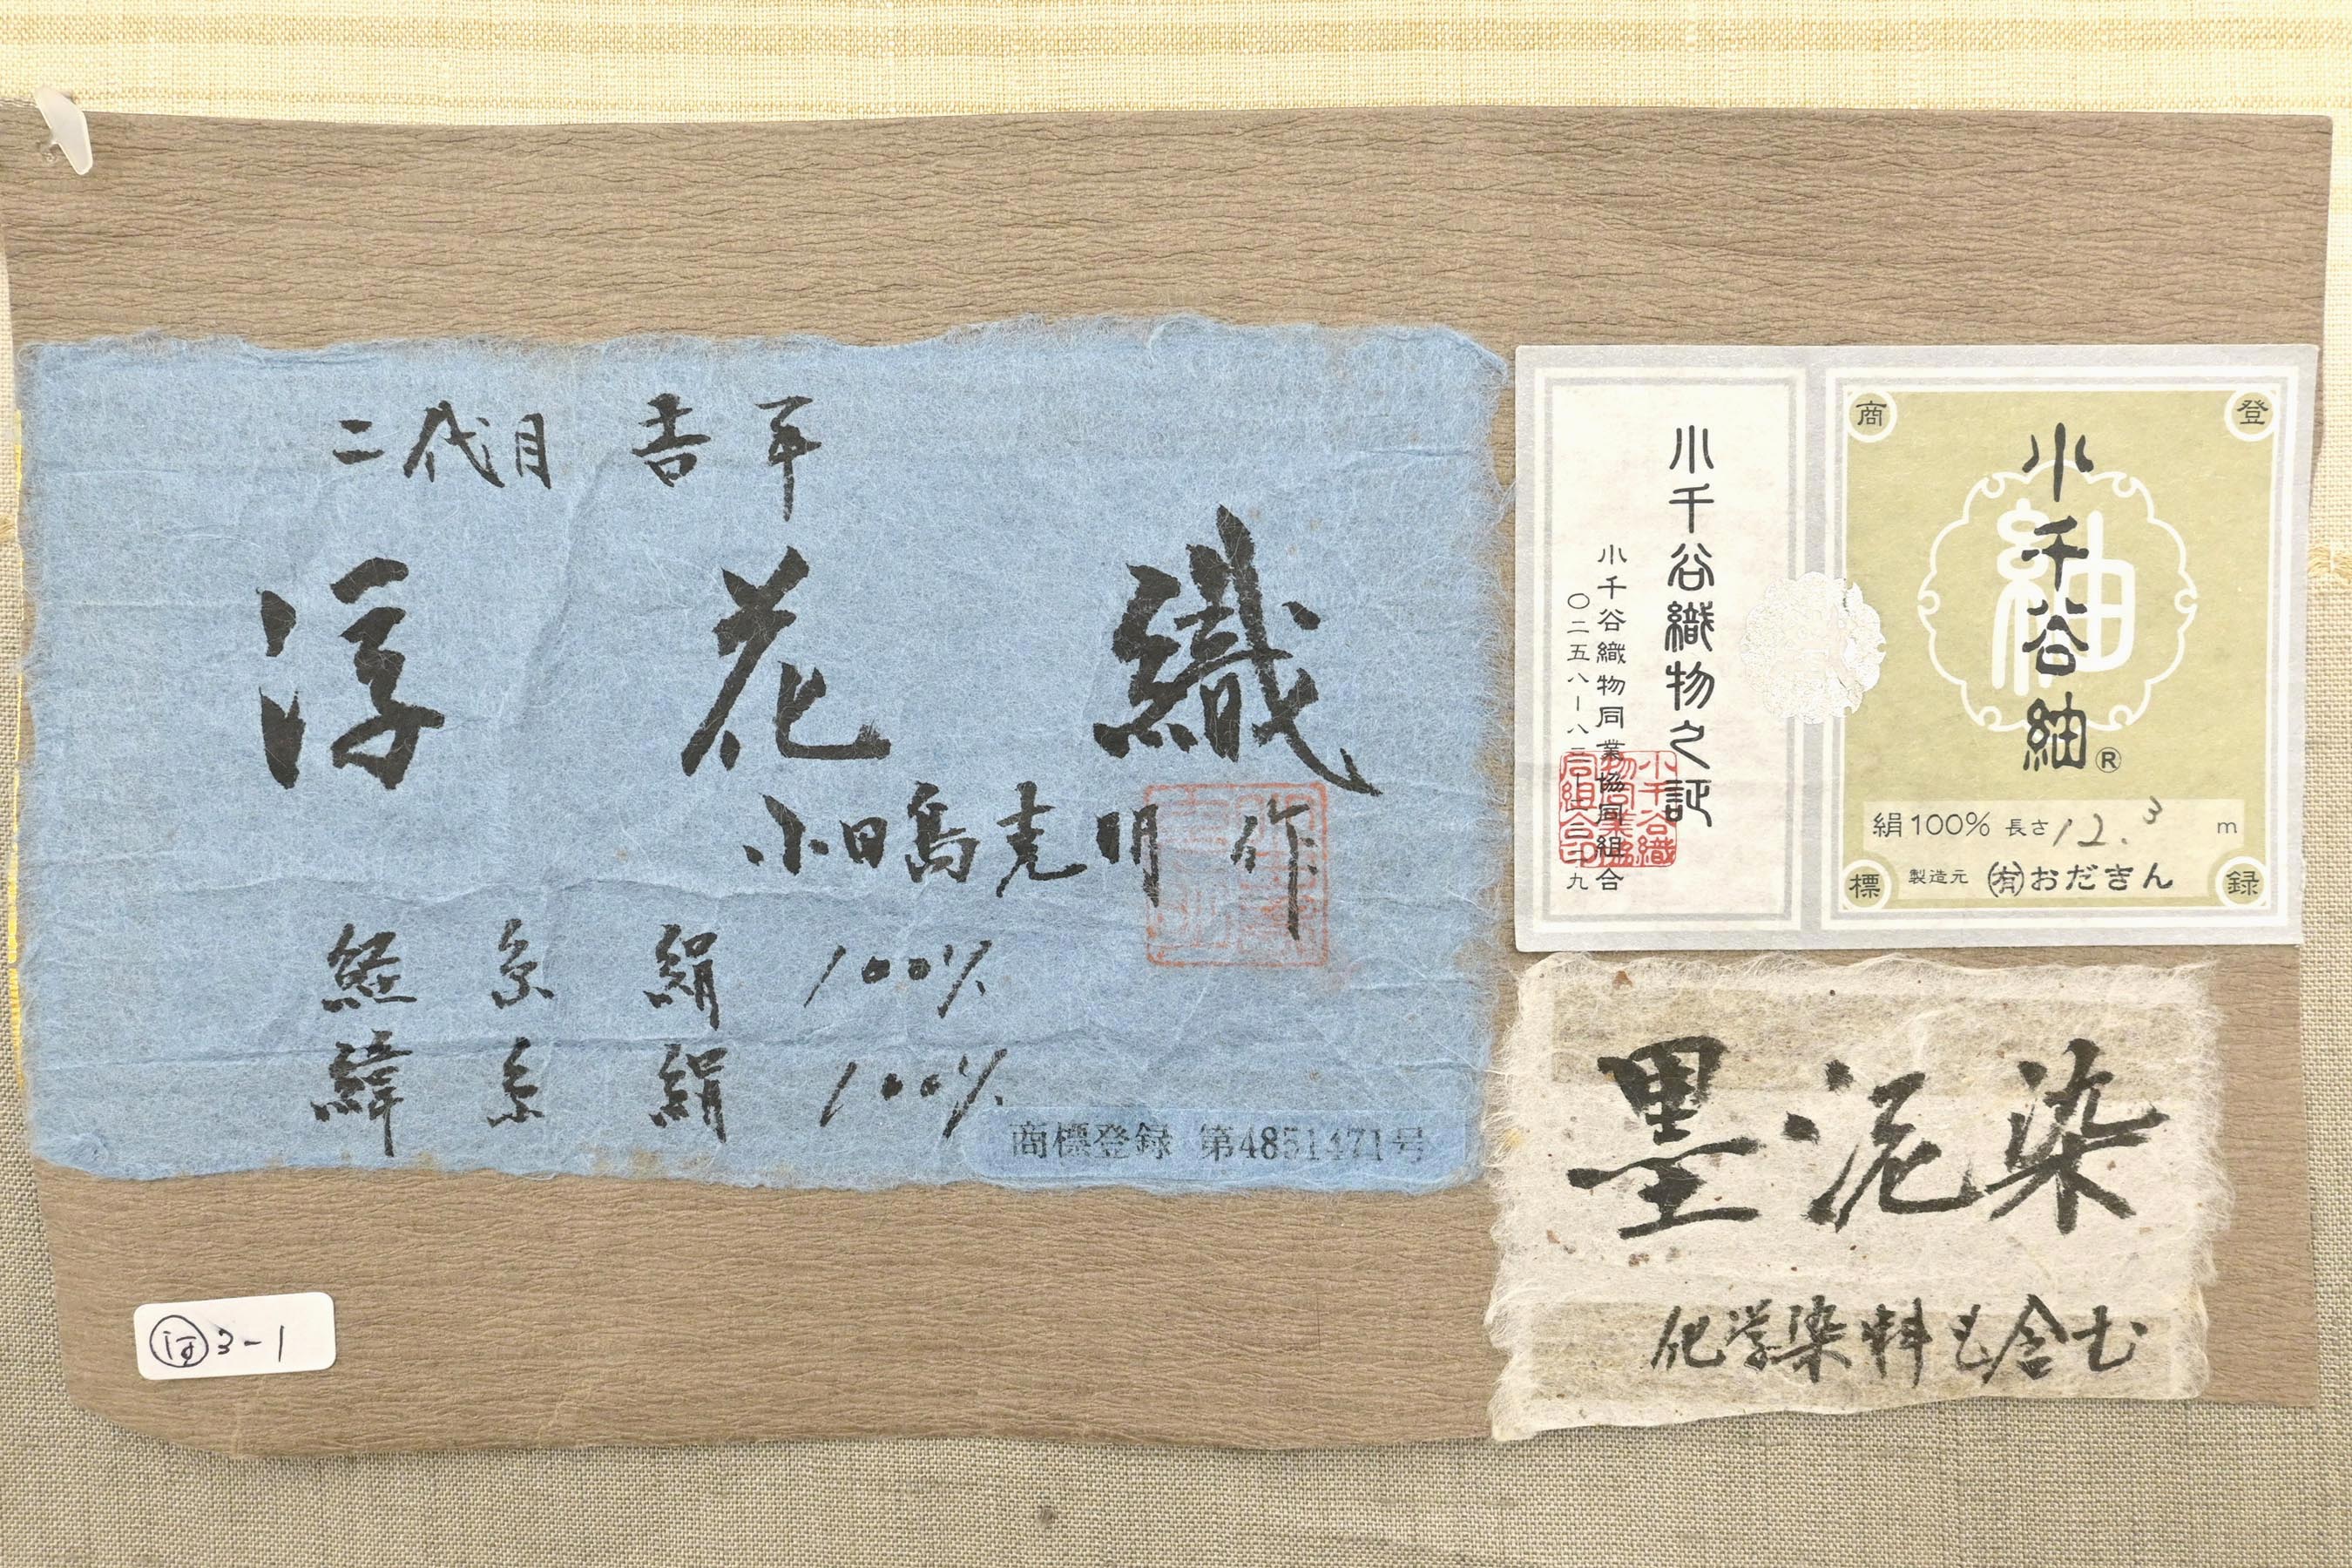 二代目 吉平
浮花織
小田島克明 作
経糸 絹 100%
緯糸 絹 100%
商標登録 第4851471号
小千谷織物之証
小千谷織物同業協同組合
〇二五八ー八三ー二三二九
登録商標
小千谷紬®
紬
絹100% 長さ12.3m
製造元 ㈲おだきん
墨泥染
化学染料も含む
3-1